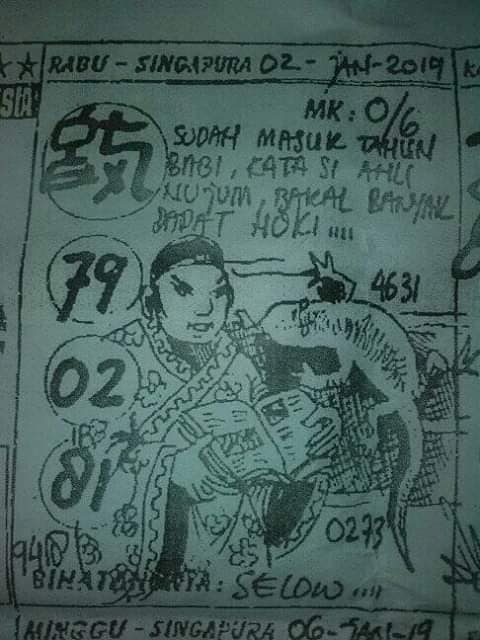 RABU - SINGAPURA 02 - JAN - 2019
SIA
MK: 0/6
SUDAH MASUK TAHUN
BABI, KATA SI AHLI
NUJUM, BAKAL BANYAK
DAPAT HOKI....
79
4631
02
81
0273
: SELOW....
MINGGU - SINGAPURA 06-JAN-19